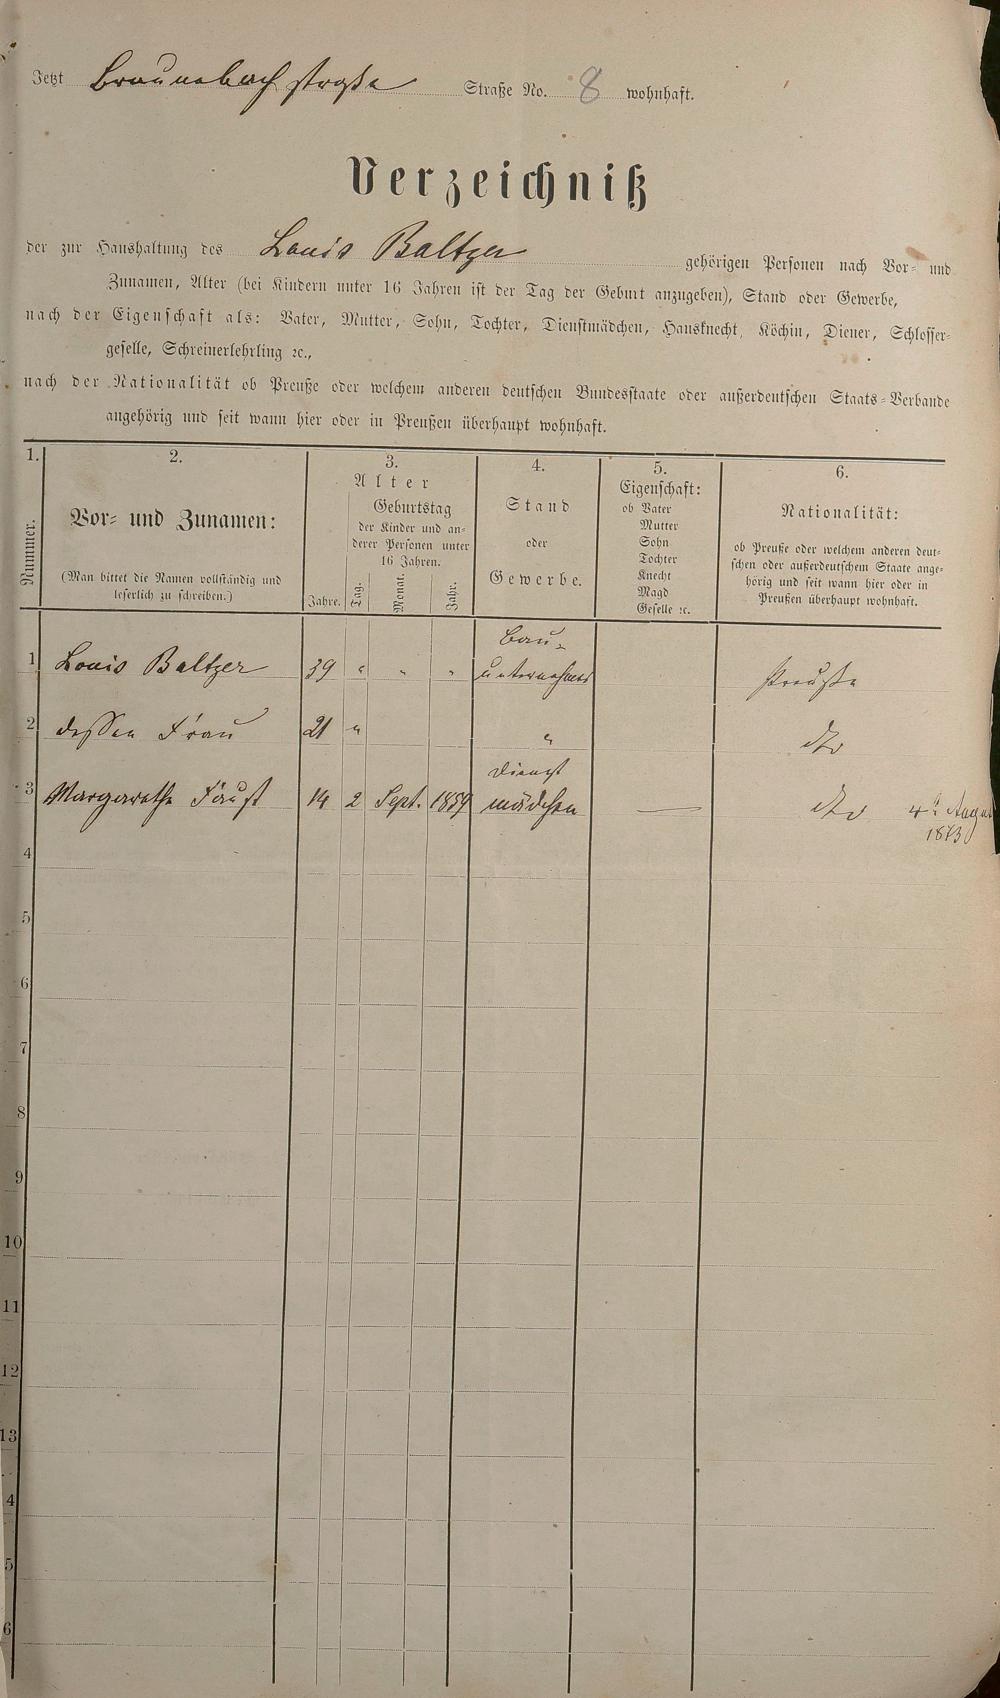 Jetzt Braunebach straße Straße No. 8 wohnhaft.
Verzeichniß
der zur Haushaltung des Louis Baltzer gehörigen Personen nach Vor- und
Zunamen, Alter (bei Kindern unter 16 Jahren ist der Tag der Geburt anzugeben), Stand oder Gewerbe,
nach der Eigenschaft als: Vater, Mutter, Sohn, Tochter, Dienstmädchen, Hausknecht, Köchin, Diener, Schlosser-
geselle, Schreinerlehrling ꝛc.,
nach der Nationalität ob Preuße oder welchem anderen deutschen Bundesstaate oder außerdeutschen Staats-Verbande
angehörig und seit wann hier oder in Preußen überhaupt wohnhaft.
1.
Nummer.
2.
Vor- und Zunamen:
(Man bittet die Namen vollständig und
leserlich zu schreiben.)
3.
Alter
Jahre.
Geburtstag
der Kinder und an-
derer Personen unter
16 Jahren.
Tag.
Monat.
Jahr.
4.
Stand
oder
Gewerbe.
5.
Eigenschaft:
ob Vater
Mutter
Sohn
Tochter
Knecht
Magd
Geselle ꝛc.
6.
Nationalität:
ob Preuße oder welchem anderen deut-
schen oder außerdeutschem Staate ange-
hörig und seit wann hier oder in
Preußen überhaupt wohnhaft.
1 Louis Baltzer 39 " " " Bau-
unternehmer Preuße
2 dessen Frau 21 " " dto
3 Margarethe Faust 14 2 Sept. 1859 Dienst
mädchen — dto 4t August
1873
4
5
6
7
8
9
10
11
12
13
4
5
6